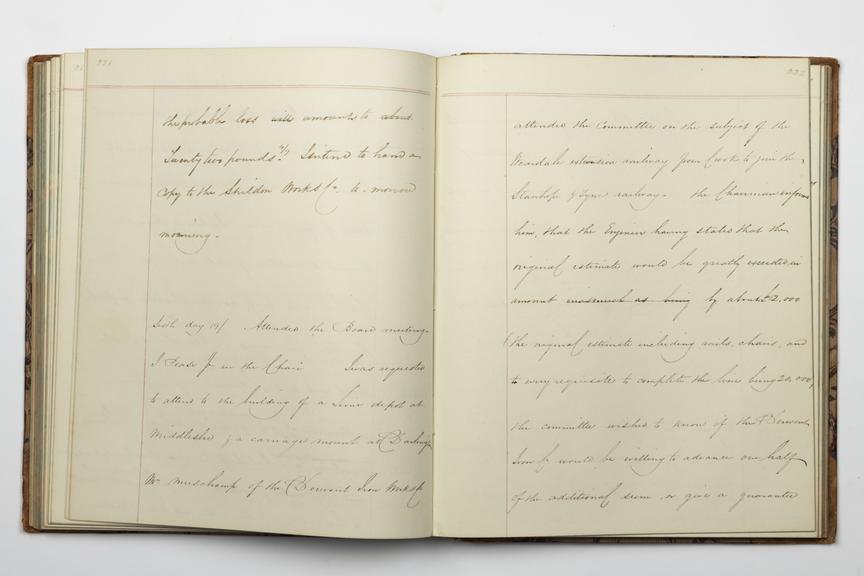 221
the probable loss will amounts to about
Twenty two pounds. Intend to hand a
Copy to the Shildon Works Co. to-morrow
morning.
Sixth day 19/ Attended the Board meeting
J Pease Jr in the Chair I was requested
to attend to the building of a Lime depot at
Middlesbro & a carriage mount at Darlingn
Mr Muschamp of the Derwent Iron Works Co
222
attended the Committee on the subject of the
Weardale extension railway from Crook to join the
Stanhope & Tyne railway. the Chairman informed
him, that the Engineer having stated that the
original estimate would be greatly exceeded in
amount inasmuch as being by about £2,000
(the original estimate including rails, chairs, and
every requisite to complete the line being 20,000)
the committee wished to know if the Derwent
Iron Co would be willing to advance one half
of the additional sum or give a guarantee